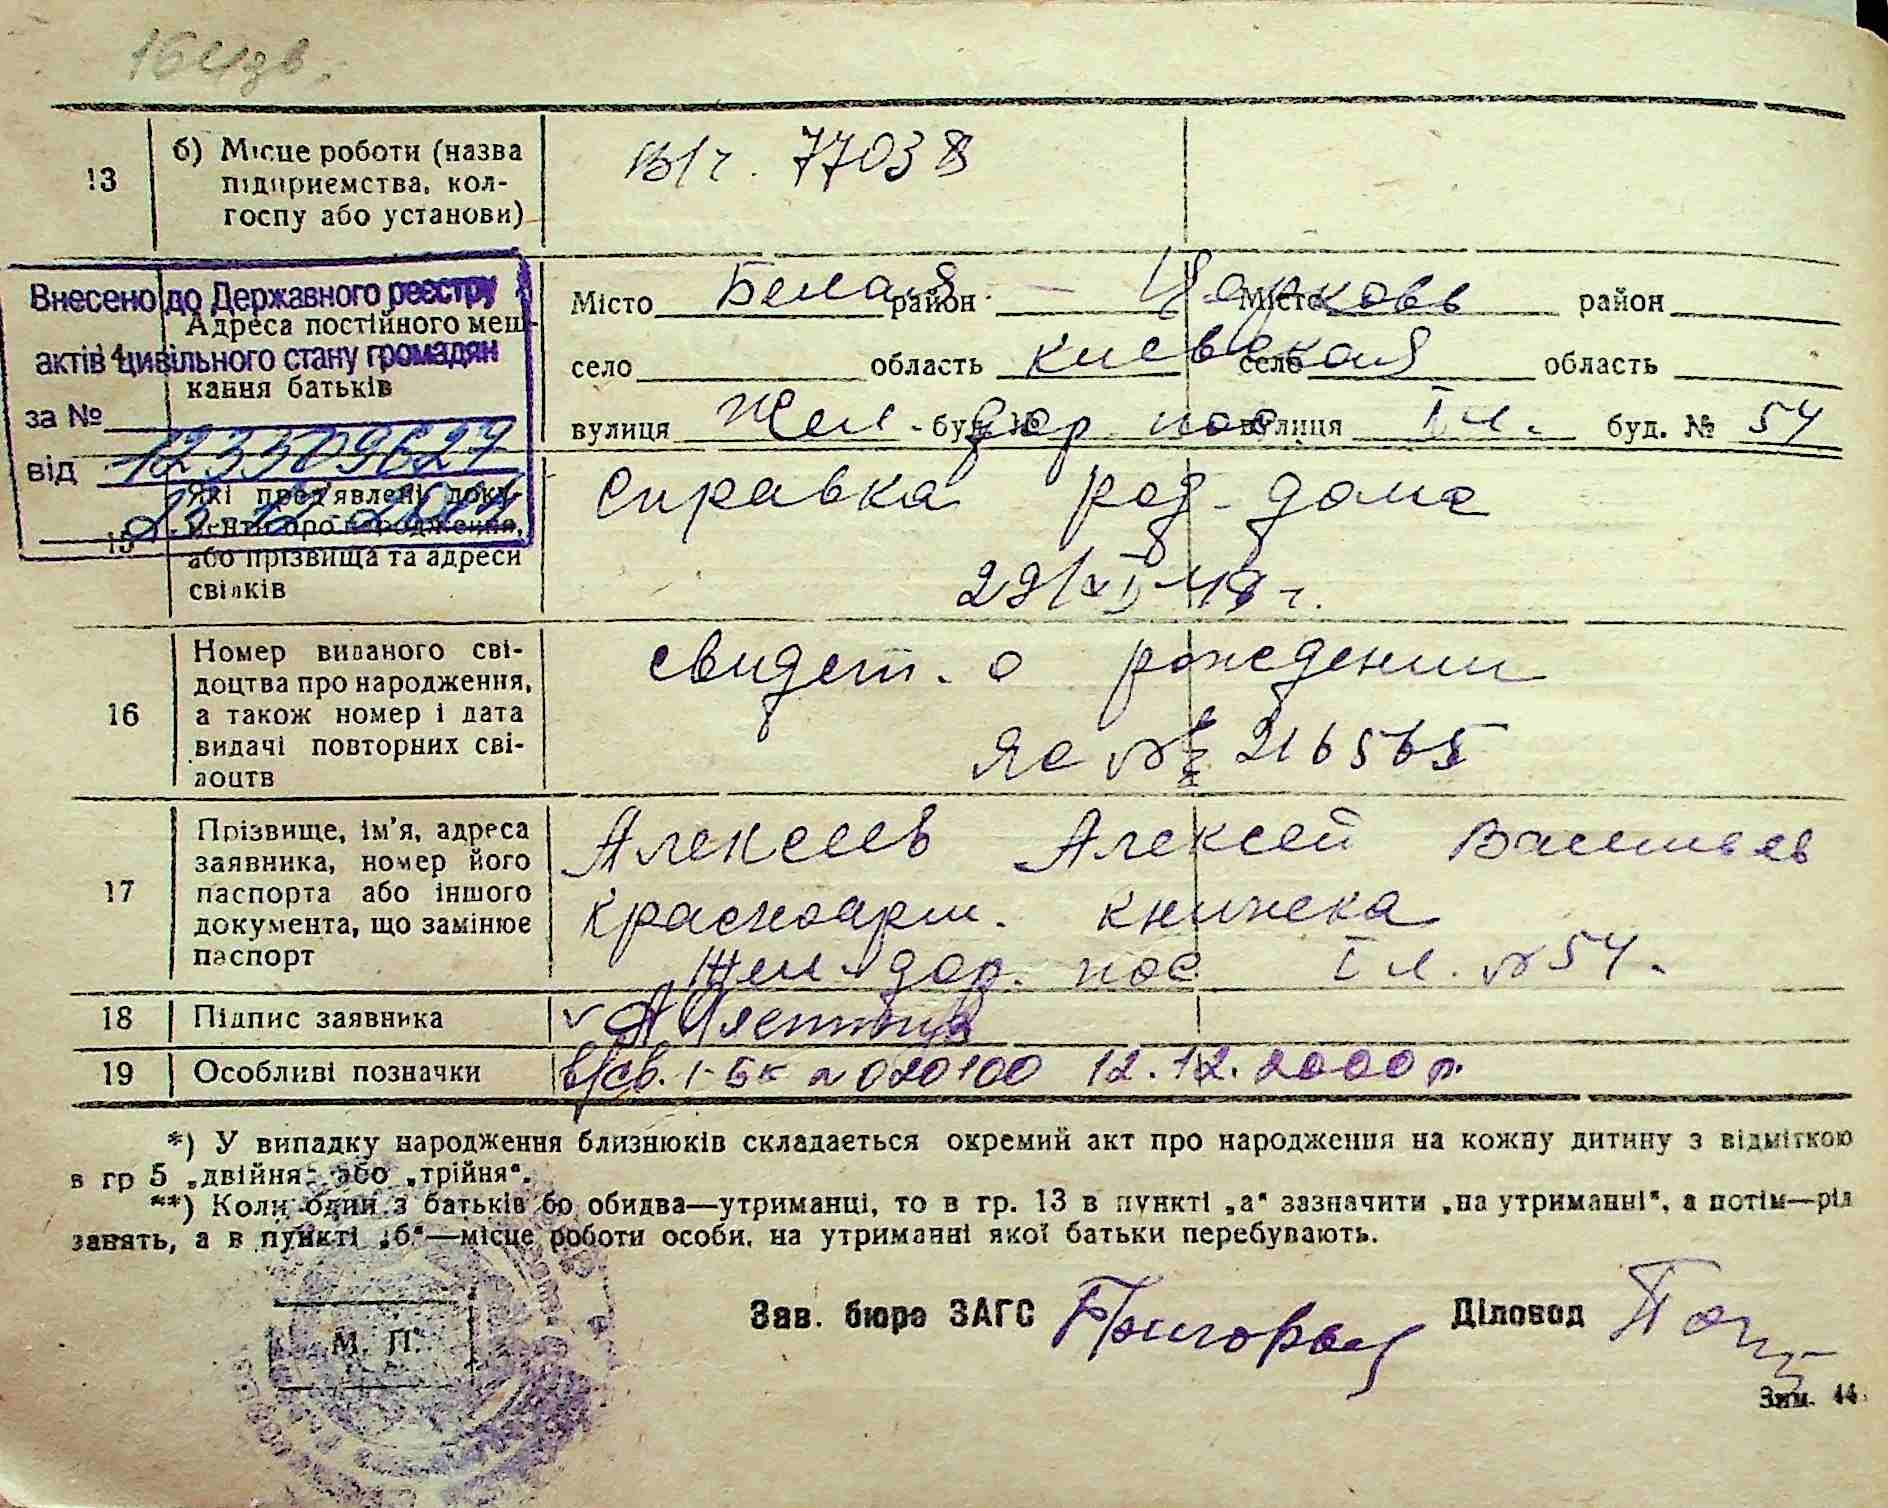 13 б) Місце роботи (назва
підприємства, кол-
госпу або установи)
в/ч. 77038
Внесено до Державного реєстру
актів цивільного стану громадян
за №
від 123309627
14 Адреса постійного меш-
кання батьків
Місто Белая район Церковь Місто район
село область киевская село область
вулиця Жел. буд. № дор. пос вулиця I л. буд. № 54
15 Які пред'явлені доку-
менти про народження,
або прізвища та адреси
свідків
Справка род. дома
29/XI-48 г.
16 Номер виданого сві-
доцтва про народження,
а також номер і дата
видачі повторних сві-
доцтв
свидет. о рождении
ЯС № 216565
17 Прізвище, ім'я, адреса
заявника, номер його
паспорта або іншого
документа, що замінює
паспорт
Алексеев Алексей Васильев
красноарм. книжка
Жел-дор. пос I л. № 54.
18 Підпис заявника
19 Особливі позначки в/св. І-БК № 020100 12.12.2000 р.
*) У випадку народження близнюків складається окремий акт про народження на кожну дитину з відміткою
в гр 5 „двійня" або „трійня".
**) Коли один з батьків бо обидва—утриманці, то в гр. 13 в пункті „а" зазначити „на утриманні", а потім—рід
занять, а в пункті „б"—місце роботи особи, на утриманні якої батьки перебувають.
М. П.
Зав. бюро ЗАГС Діловод
Зим. 44